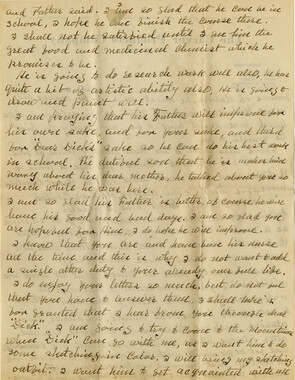 and Father said. I am so glad that he can be in
school, I hope he can finish the course there.
I shall not be satisfied until I see him the
great good and medicinal chemist which he
promises to be.
He is going to do research work will also, he has
quite a bit of artistic ability also, He is going to
draw and paint well.
I am praying that his Father will improve for
his own sake, and for yours sake, and third
for "Dear Dick's" sake so he can do his best work
in school. The dutiful son that he is makes him
worry about his dear mother, he talked about you so
much while he was here.
I am so glad his Father is better, of course he will
have his good and bad days. I am so glad you
are hopeful for him, I do hope he will improve.
I know that you are and have been his nurse
all the time and this is why I do not want to add
a single other duty to your already over full life.
I do enjoy your letters so much, but do not feel
that you have to answer them. I shall take it
for granted that I hear from you through dear
"Dick". I am going to try to come to the Mountains
where "Dick" can go with me, as I want him to do
some sketching in color. I will bring my sketching
outfit. I want him to get acquainted with me